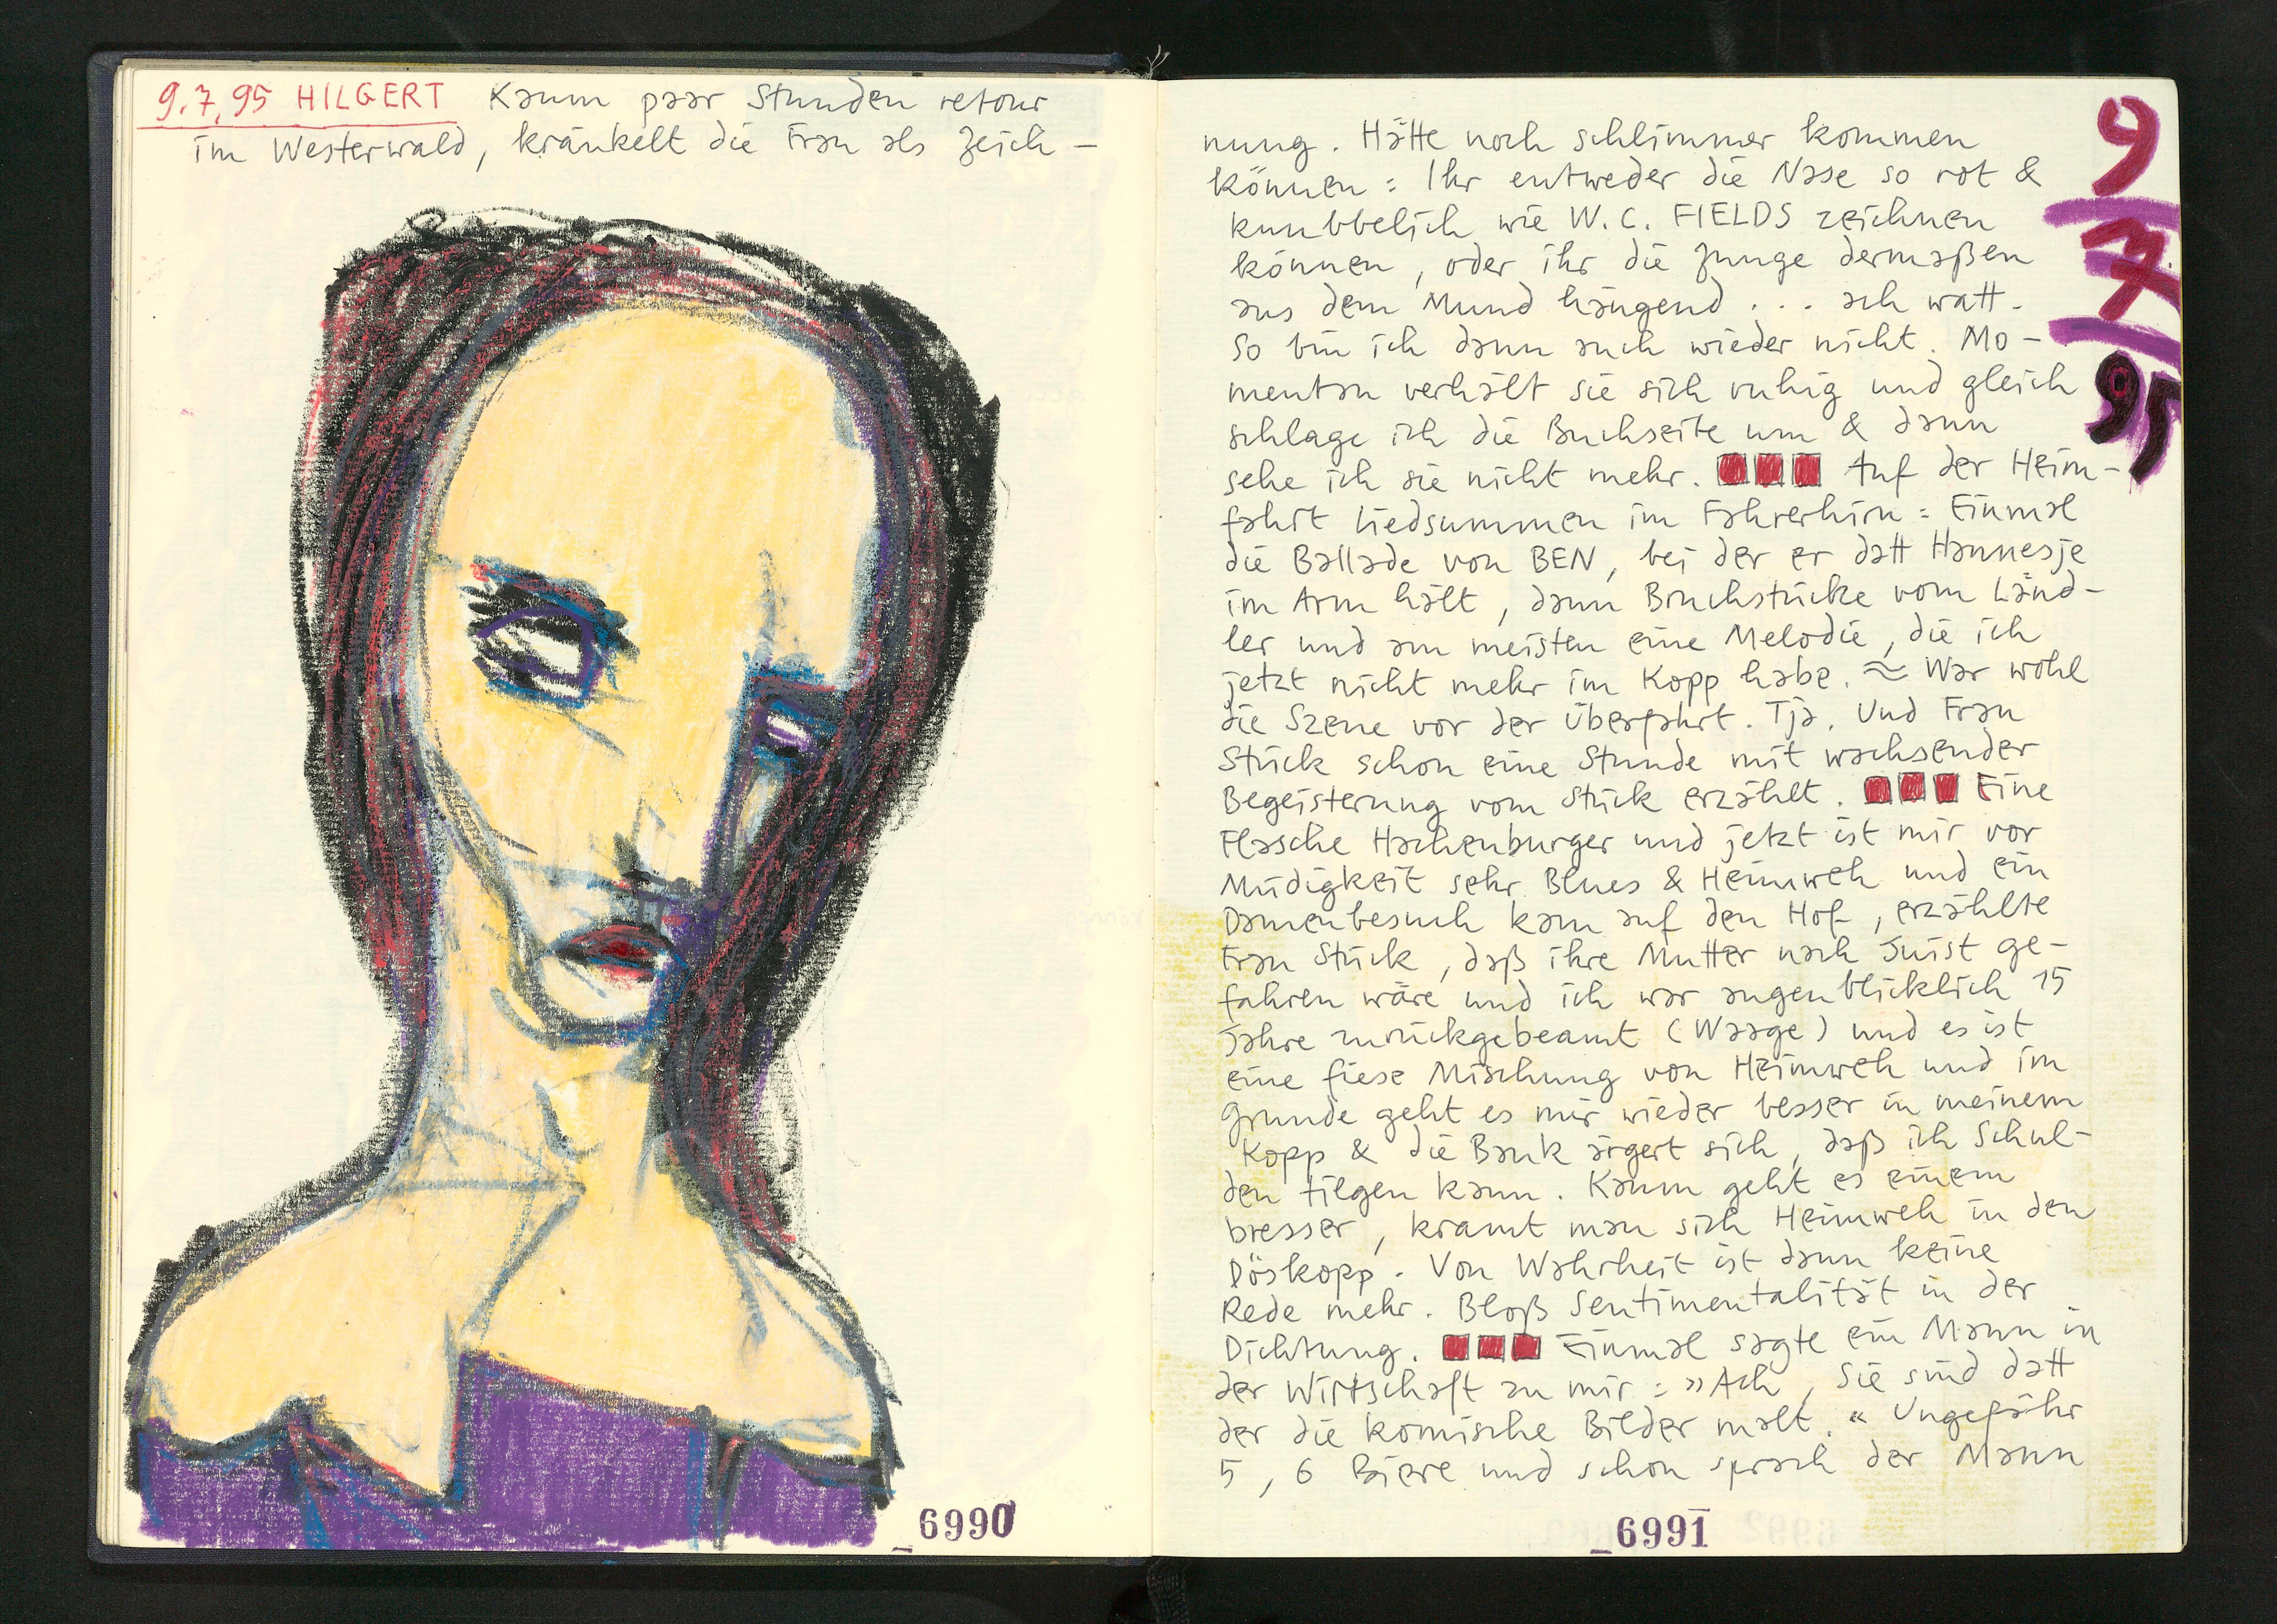 9.7.95 HILGERT Kaum paar Stunden retour
im Westerwald, kränkelt die Frau als Zeich-
6990
9
7
95
nung. Hätte noch schlimmer kommen
können: Ihr entweder die Nase so rot &
knubbelich wie W.C. FIELDS zeichnen
können, oder ihr die Zunge dermaßen
aus dem Mund hängend... ach watt.
So bin ich dann auch wieder nicht. Mo-
mentan verhält sie sich ruhig und gleich
schlage ich die Buchseite um & dann
sehe ich sie nicht mehr. Auf der Heim-
fahrt Liedsummen im Fahrerhirn: Einmal
die Ballade von BEN, bei der er datt Hannesje
im Arm hält, dann Bruchstücke vom Länd-
ler und am meisten eine Melodie, die ich
jetzt nicht mehr im Kopp habe. ≈ War wohl
die Szene vor der Überfahrt. Tja. Und Frau
Stück schon eine Stunde mit wachsender
Begeisterung vom Stück erzählt. Eine
Flasche Hachenburger und jetzt ist mir vor
Müdigkeit sehr Blues & Heimweh und ein
Damenbesuch kam auf den Hof, erzählte
Frau Stück, daß ihre Mutter nach Juist ge-
fahren wäre und ich war augenblicklich 15
Jahre zurückgebeamt (Waage) und es ist
eine fiese Mischung von Heimweh und im
Grunde geht es mir wieder besser in meinem
Kopp & die Bank ärgert sich, daß ich Schul-
den tilgen kann. Kaum geht es einem
besser, kramt man sich Heimweh in den
Döskopp. Von Wahrheit ist dann keine
Rede mehr. Bloß Sentimentalität in der
Dichtung. Einmal sagte ein Mann in
der Wirtschaft zu mir: »Ach, Sie sind datt
der die komische Bilder malt.« Ungefähr
5, 6 Biere und schon sprach der Mann
6991